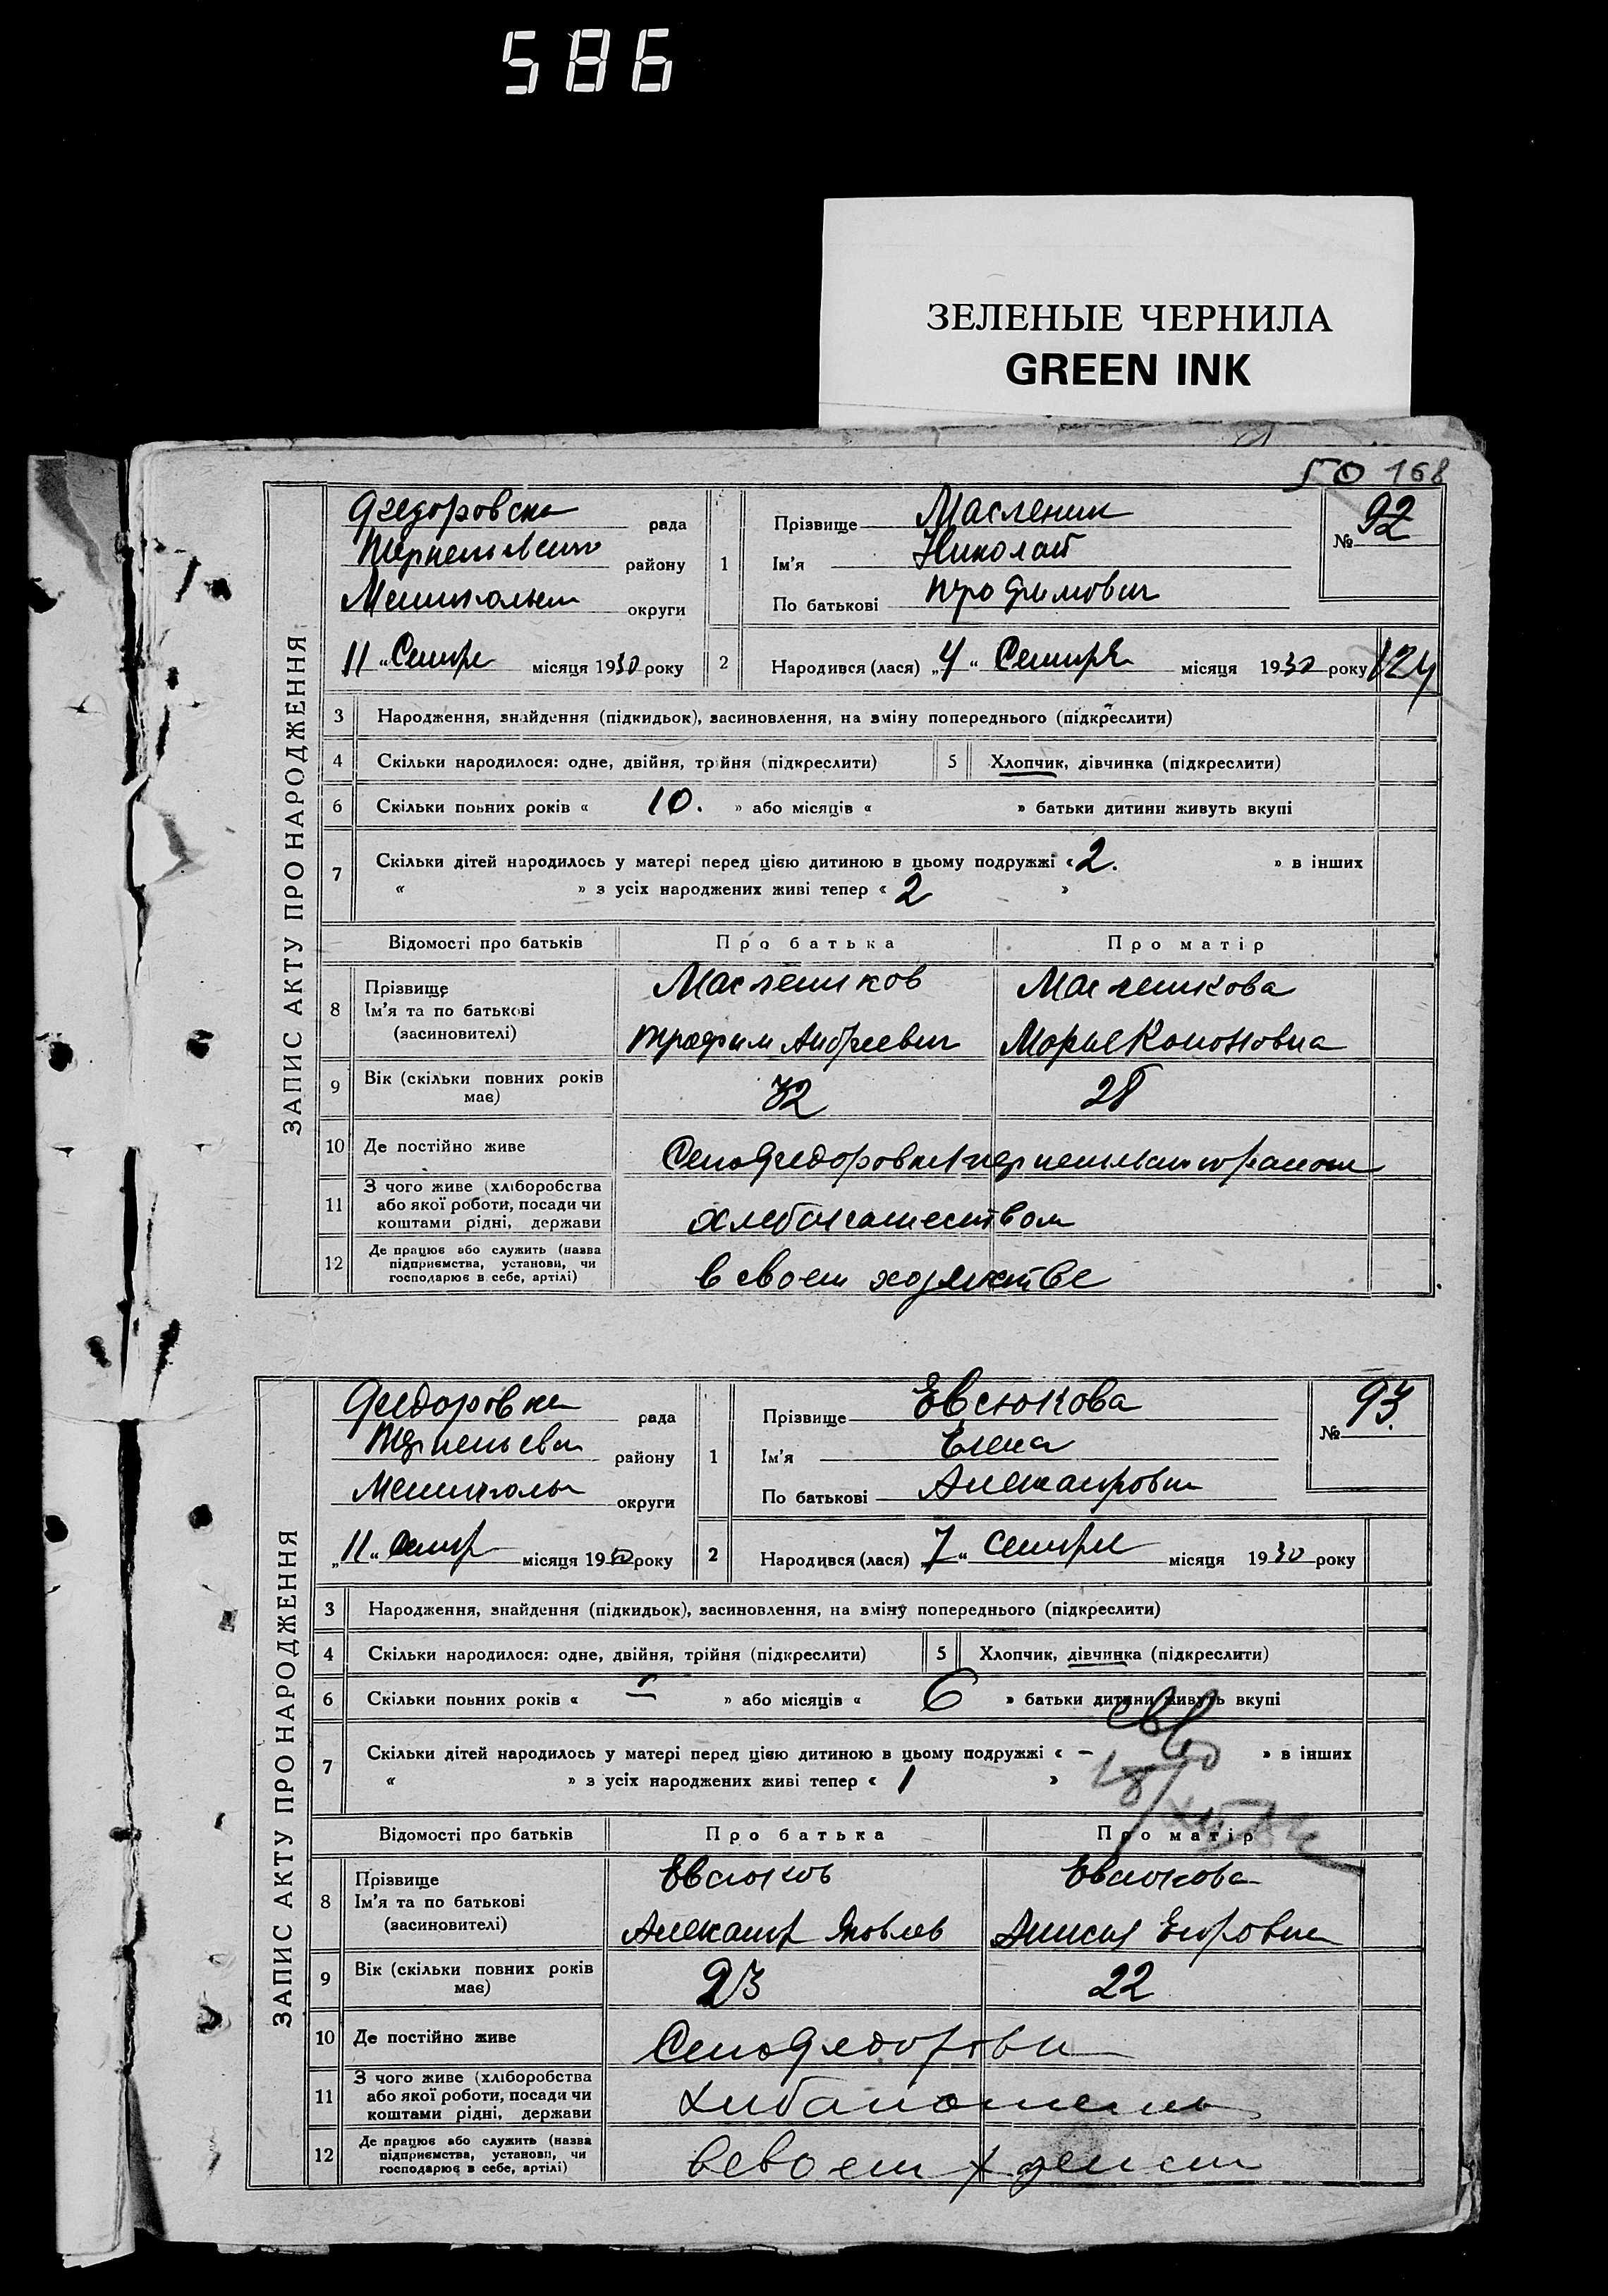 586
ЗЕЛЕНЫЕ ЧЕРНИЛА
GREEN INK
50 168
ЗАПИС АКТУ ПРО НАРОДЖЕННЯ
Федоровска рада
району
округи
11 „ Сентр місяця 1930 року
1 Прізвище Масленик
Ім'я Николай
По батькові Трофимович
№ 92
2 Народився (лася) „4“ Сентря місяця 1930 року
124
3 Народження, знайдення (підкидьок), засиновлення, на зміну попереднього (підкреслити)
4 Скільки народилося: одне, двійня, трійня (підкреслити) 5 Хлопчик, дівчинка (підкреслити)
6 Скільки повних років « 10. » або місяців « » батьки дитини живуть вкупі
7 Скільки дітей народилось у матері перед цією дитиною в цьому подружжі « 2. » в інших
« » з усіх народжених живі тепер « 2 »
Відомості про батьків Про батька Про матір
8 Прізвище
Ім'я та по батькові
(засиновителі)
Маслеников Масленикова
Трофим Андреевич Марие Кононовна
9 Вік (скільки повних років
має)
32 28
10 Де постійно живе Село Федоровка
11 З чого живе (хліборобства
або якої роботи, посади чи
коштами рідні, держави
хлебопашеством
12 Де працює або служить (назва
підприємства, установи, чи
господарює в себе, артілі)
в своем хозяистве
ЗАПИС АКТУ ПРО НАРОДЖЕННЯ
Федоровка рада
району
округи
„11“ Сентр місяця 1930 року
1 Прізвище Евсюкова
Ім'я Елена
По батькові Александровн
№ 93.
2 Народився (лася) „7“ Сентря місяця 1930 року
3 Народження, знайдення (підкидьок), засиновлення, на зміну попереднього (підкреслити)
4 Скільки народилося: одне, двійня, трійня (підкреслити) 5 Хлопчик, дівчинка (підкреслити)
6 Скільки повних років « – » або місяців « 6 » батьки дитини живуть вкупі
7 Скільки дітей народилось у матері перед цією дитиною в цьому подружжі « – » в інших
« » з усіх народжених живі тепер « 1 »
Відомості про батьків Про батька Про матір
8 Прізвище
Ім'я та по батькові
(засиновителі)
Евсюков Евсюкова
Александр Яковлев Анисия Егоровна
9 Вік (скільки повних років
має)
23 22
10 Де постійно живе Село Федоровк
11 З чого живе (хліборобства
або якої роботи, посади чи
коштами рідні, держави
12 Де працює або служить (назва
підприємства, установи, чи
господарює в себе, артілі)
в своем